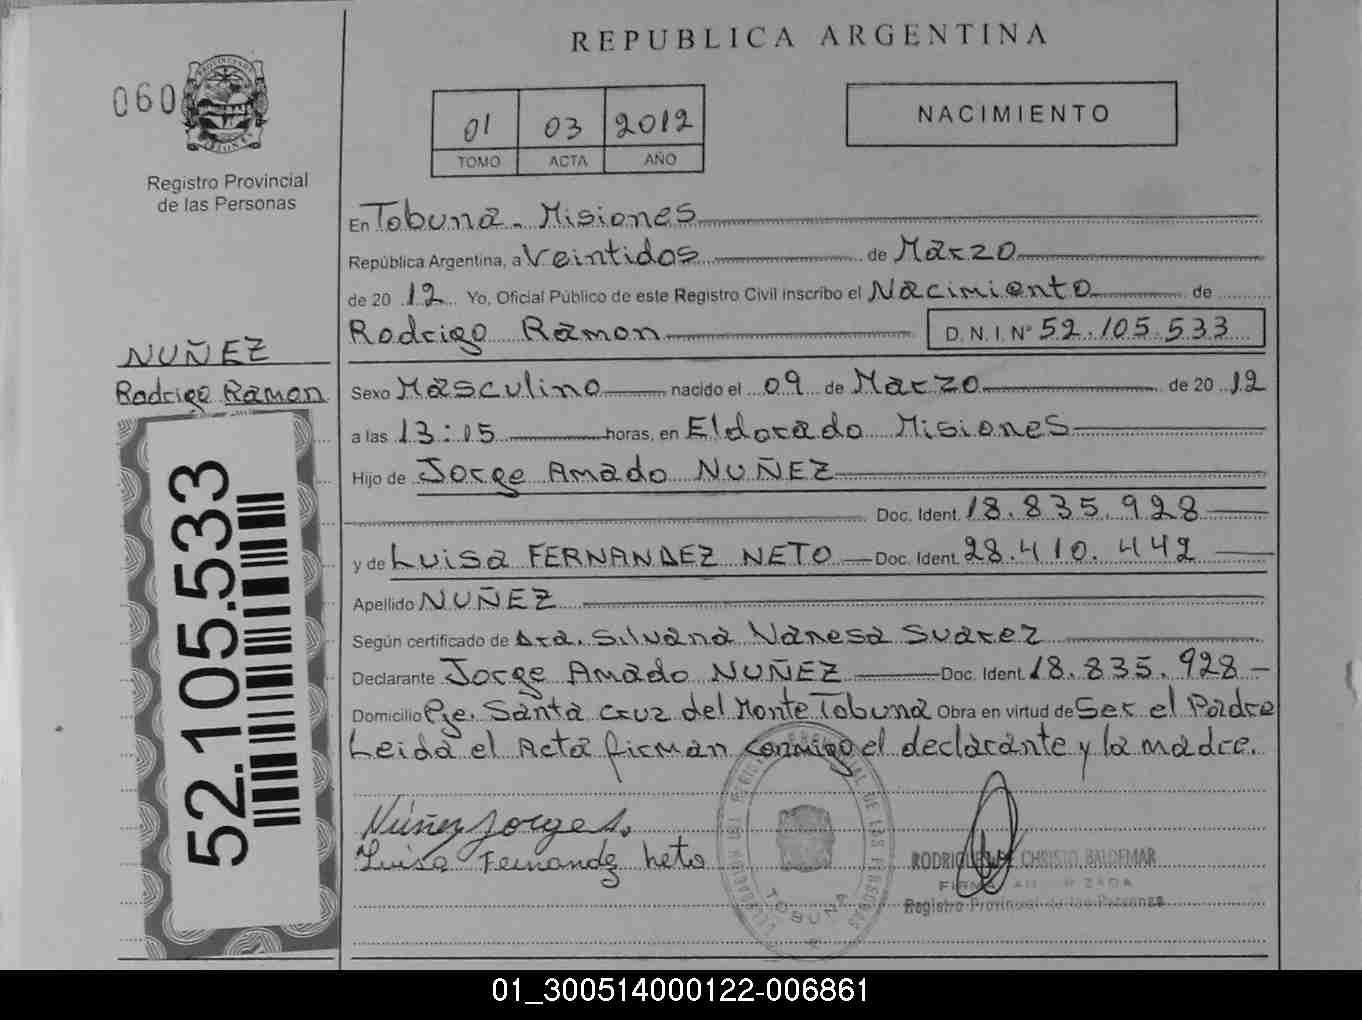 REPUBLICA ARGENTINA
060
PROVINCIA DE
MISIONES
Registro Provincial
de las Personas
01 03 2012
TOMO ACTA AÑO
NACIMIENTO
En Tobuna - Misiones
República Argentina, a Veintidos de Marzo
de 20 12 Yo, Oficial Público de este Registro Civil inscribo el Nacimiento de
Rodrigo Ramon D. N. I. N° 52.105.533
NUÑEZ
Rodrigo Ramon
Sexo Masculino nacido el 09 de Marzo de 20 12
a las 13:15 horas, en Eldorado Misiones
Hijo de Jorge Amado NUÑEZ
Doc. Ident. 18.835.928
y de Luisa FERNANDEZ NETO Doc. Ident. 28.410.442
Apellido NUÑEZ
Según certificado de Dra. Silvana Vanesa Suarez
Declarante Jorge Amado NUÑEZ Doc. Ident. 18.835.928
Domicilio Pje. Santa Cruz del Monte Tobuna Obra en virtud de Ser el Padre
Leida el Acta firman conmigo el declarante y la madre.
52.105.533
Núñez Jorge A.
Luisa Fernandz neto
TOBUNA
CHRISTO BALDEMAR
FIRMA AUTORIZADA
Registro Provincial de las Personas
01_300514000122-006861